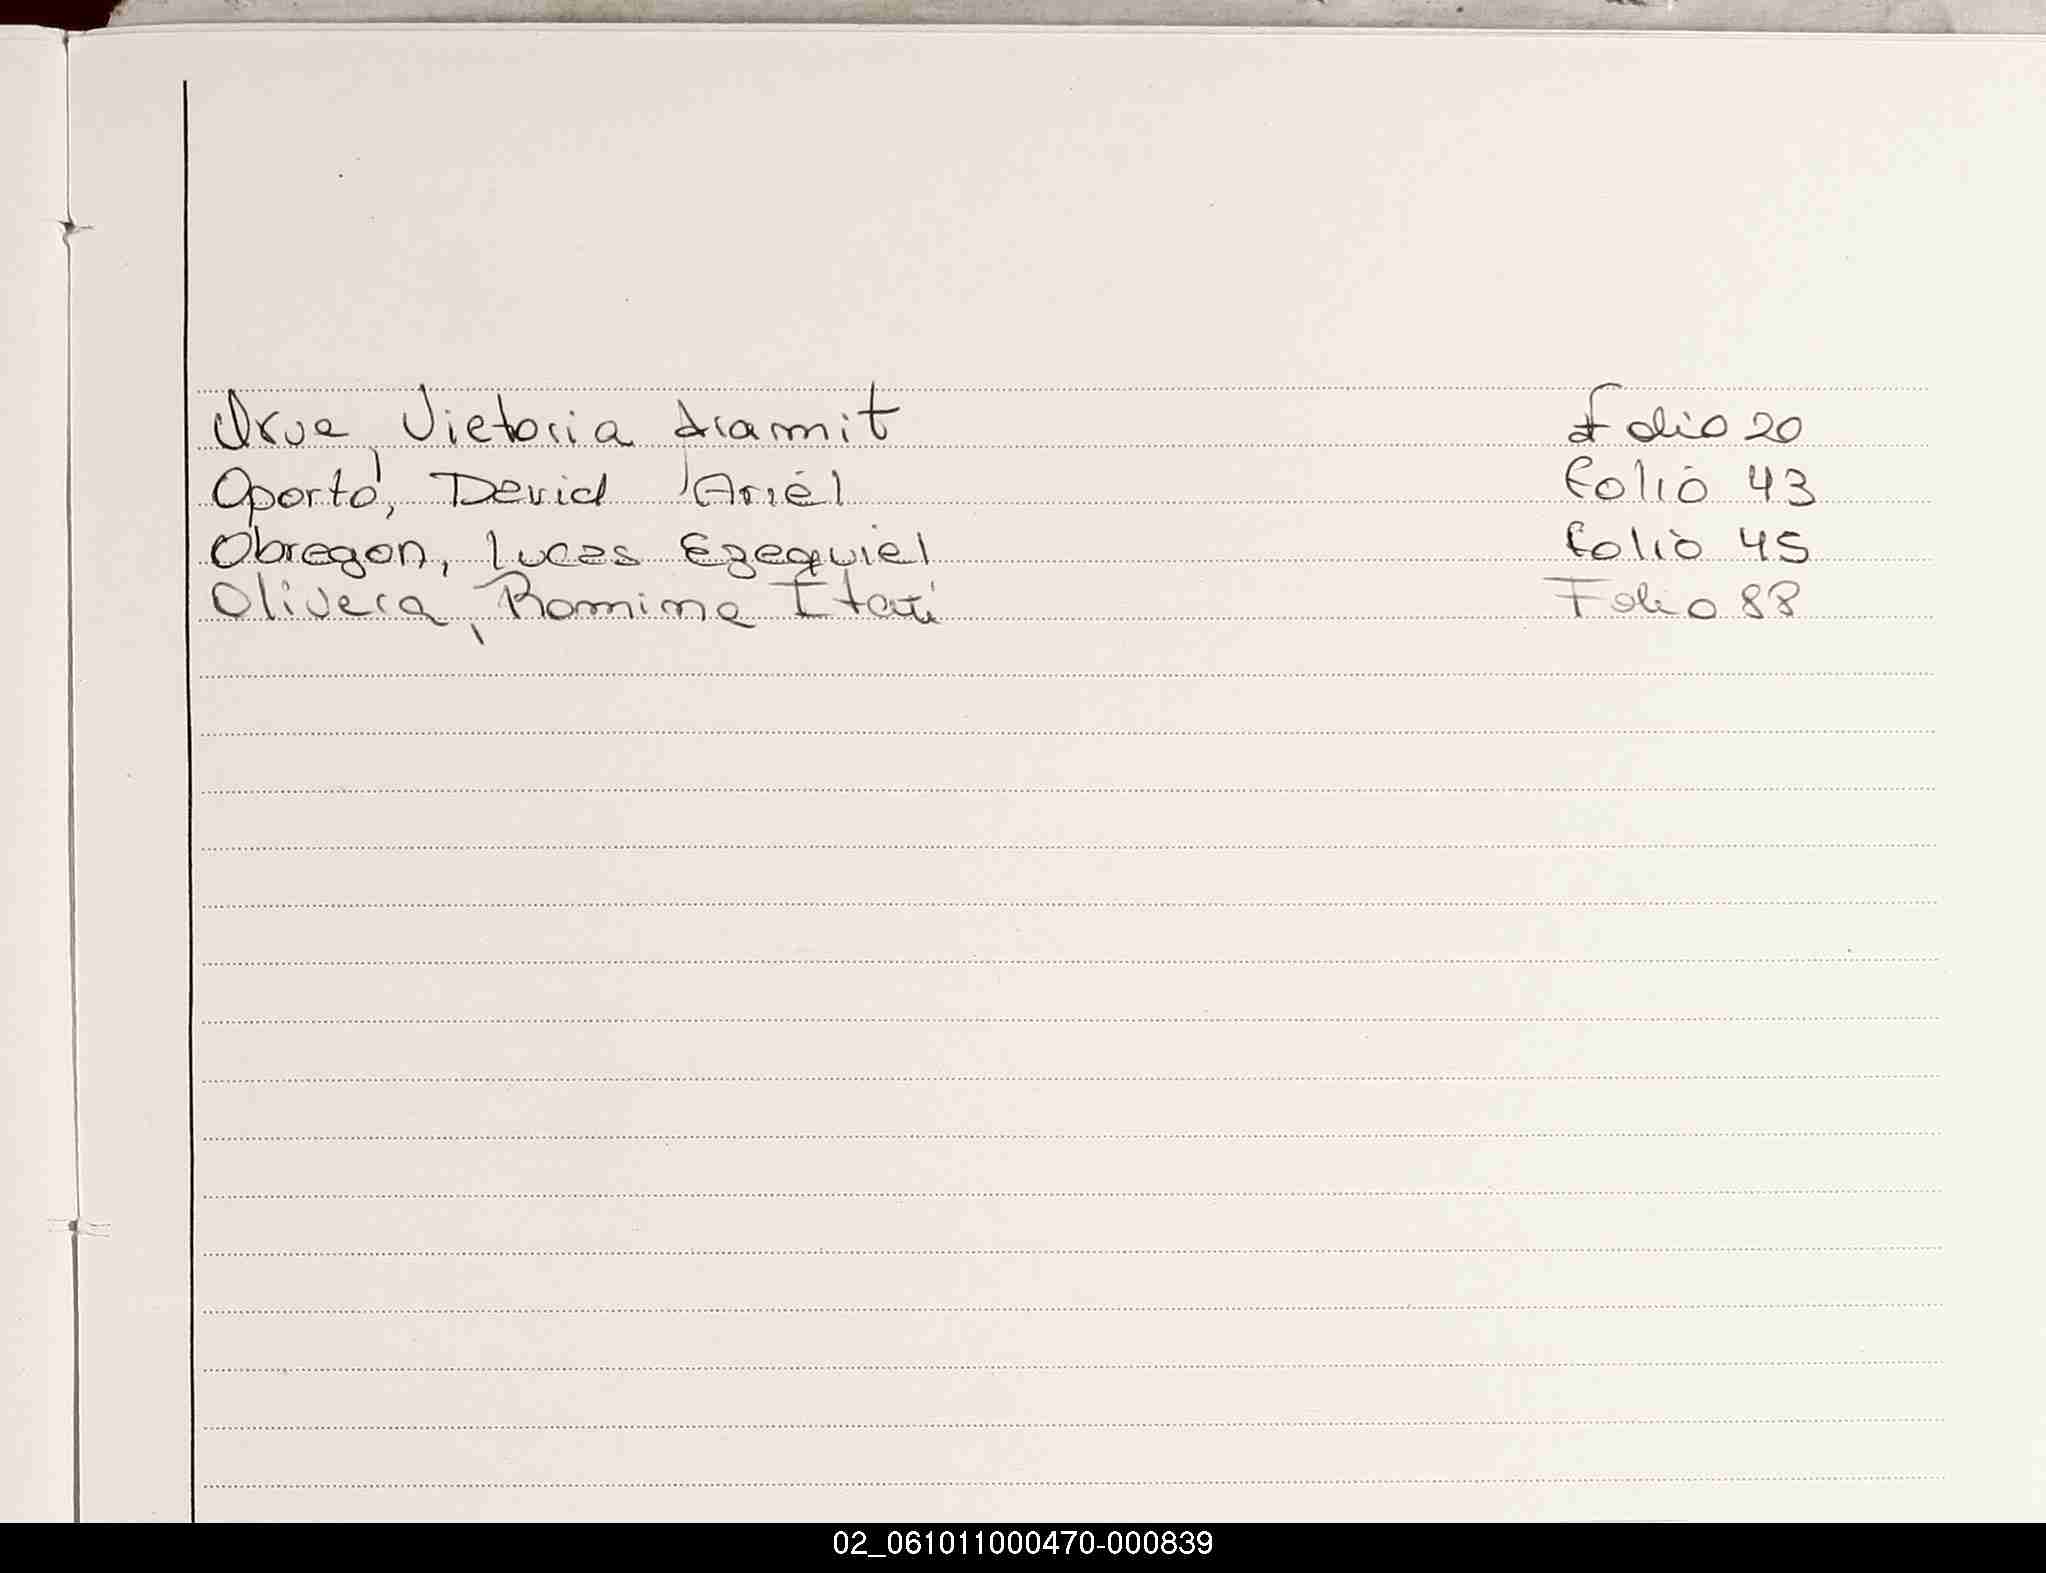 Orue, Victoria Aramit Folio 20
Oporto, David Ariel folio 43
Obregon, Lucas Ezequiel folio 45
Olivera, Romina Itatí Folio 88
02_061011000470-000839